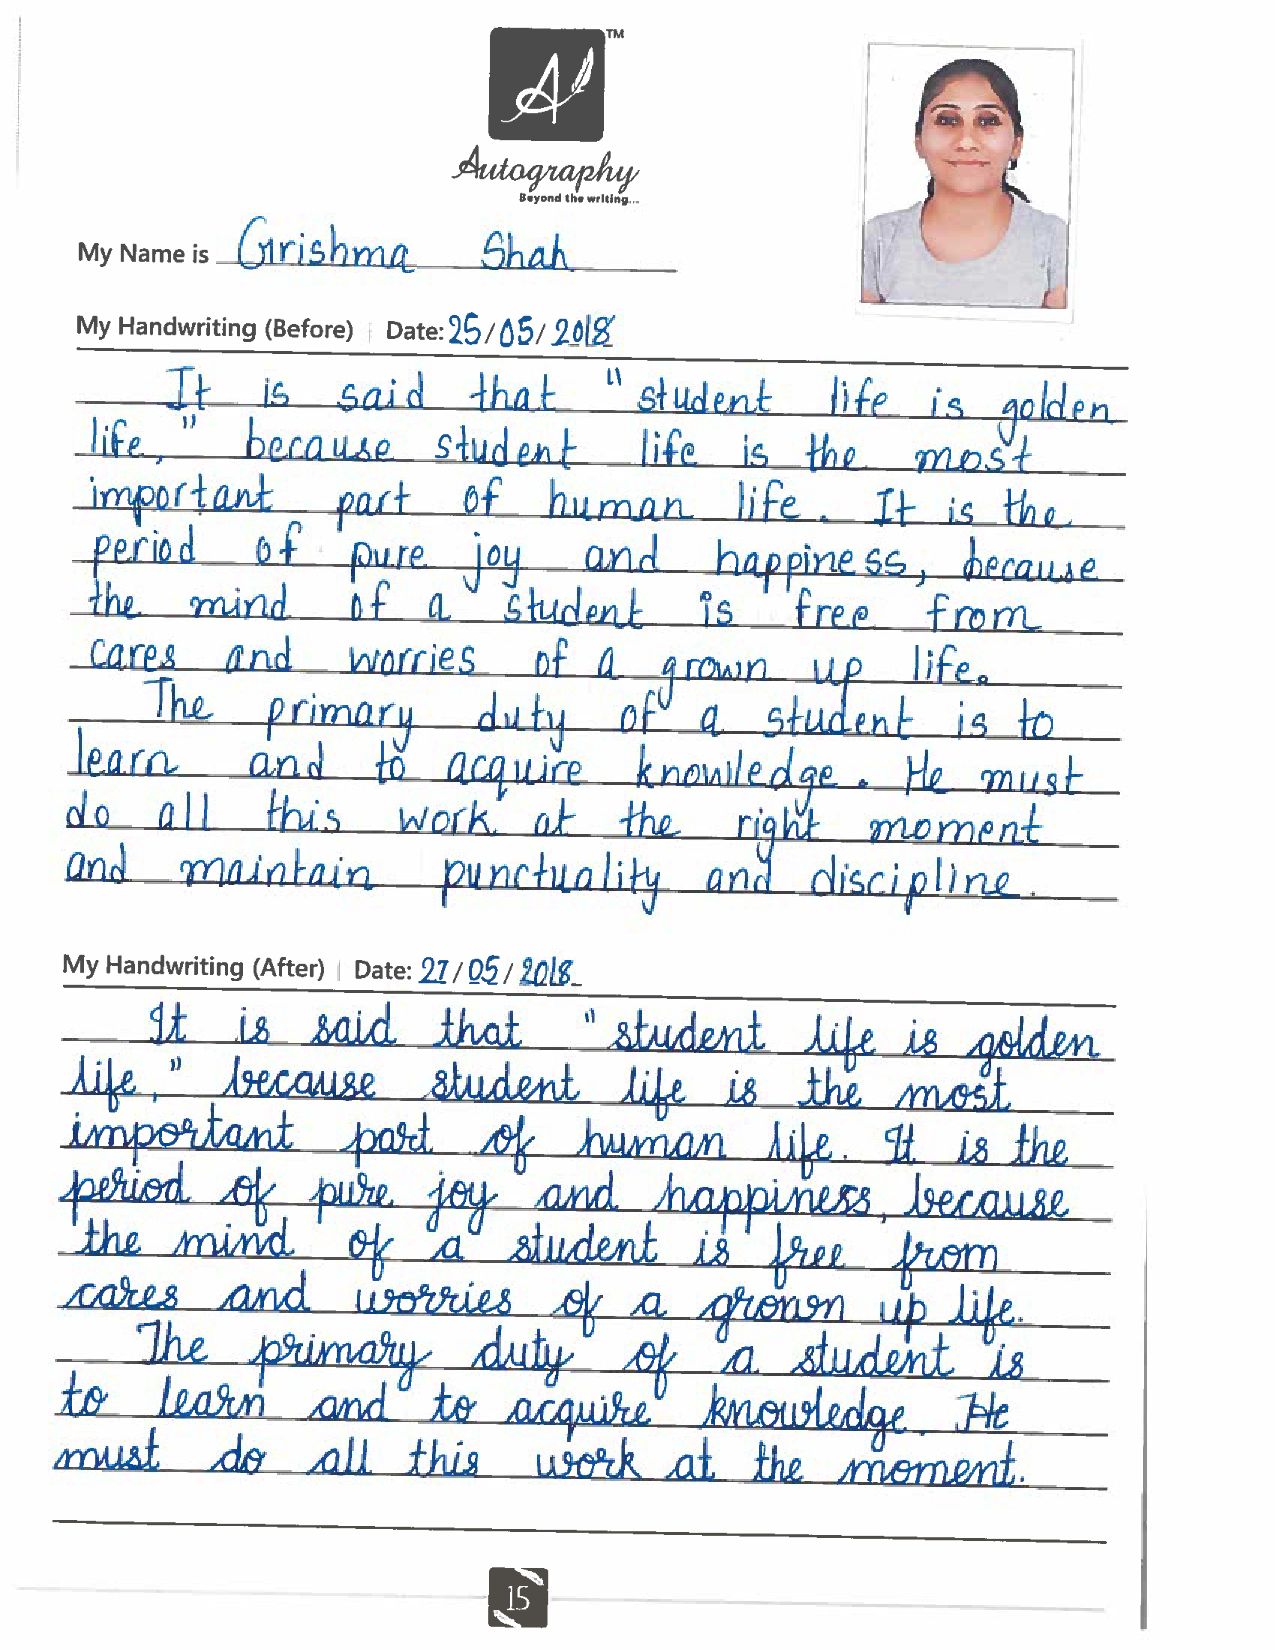 TM
A
Autography
Beyond the writing...
My Name is Grishma Shah
My Handwriting (Before) | Date: 25/05/2018
It is said that "student life is golden
life," because student life is the most
important part of human life. It is the
period of pure joy and happiness, because
the mind of a student is free from
cares and worries of a grown up life.
The primary duty of a student is to
learn and to acquire knowledge. He must
do all this work at the right moment
and maintain punctuality and discipline.
My Handwriting (After) | Date: 27/05/2018
It is said that "student life is golden
life," because student life is the most
important part of human life. It is the
period of pure joy and happiness, because
the mind of a student is free from
cares and worries of a grown up life.
The primary duty of a student is
to learn and to acquire knowledge. He
must do all this work at the moment.
15